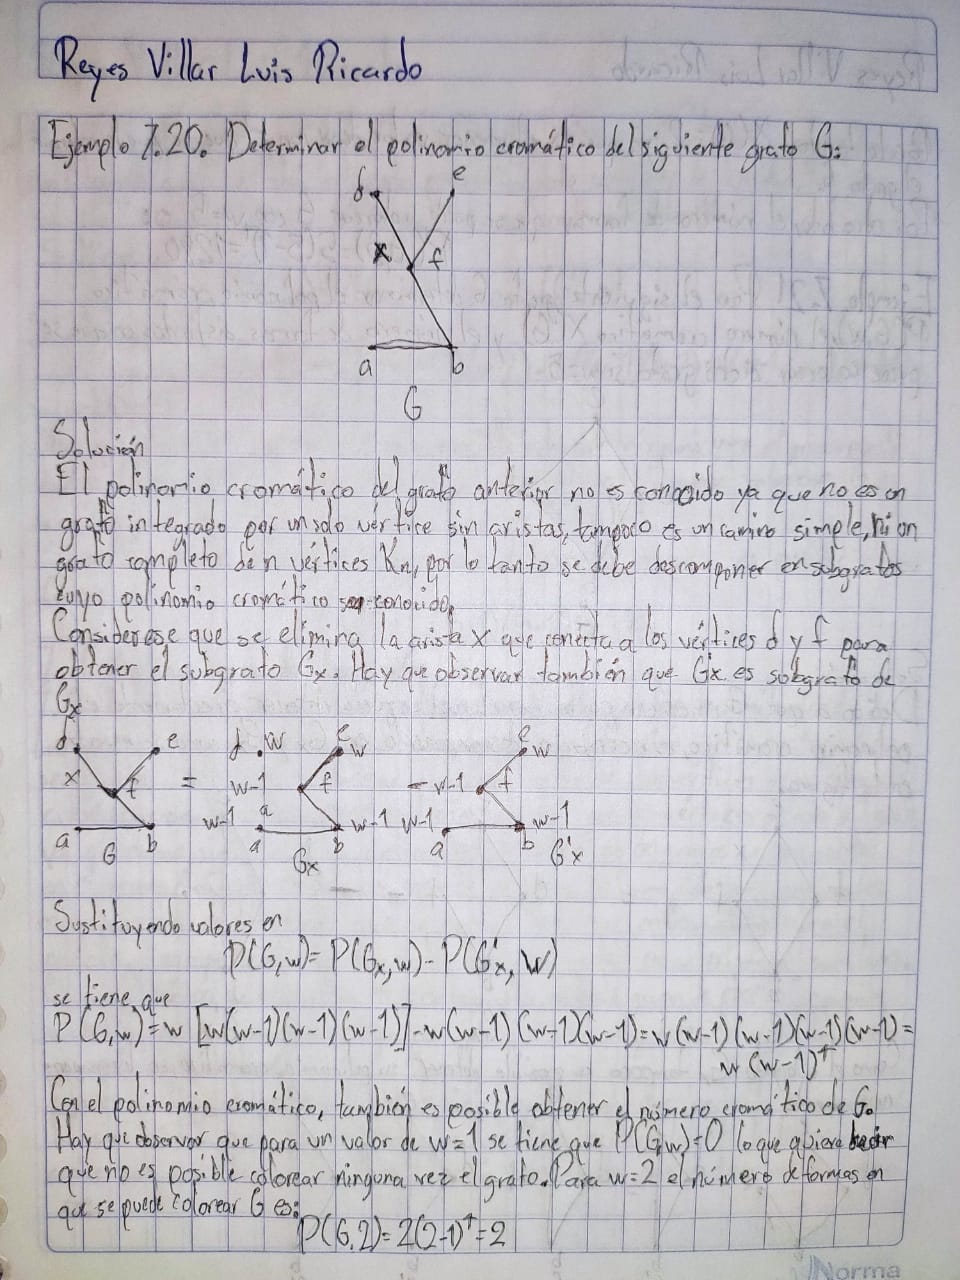 Reyes Villar Luis Ricardo
Ejemplo 7.20. Determinar el polinomio cromático del siguiente grafo G:
d e
x f
a b
G
Solución
El polinomio cromático del grafo anterior no es conocido ya que no es un
grafo integrado por un solo vértice sin aristas, tampoco es un camino simple, ni un
grafo completo de n vértices Kn, por lo tanto se debe descomponer en subgrafos
cuyo polinomio cromático sea conocido.
Considerese que se elimina la arista x que conecta a los vértices d y f para
obtener el subgrafo Gx. Hay que observar también que G'x es subgrafo de
Gx
d e d .w e w e w
x f = w-1 f - w-1 f
w-1 a w-1 w-1 w-1
a b a b a b
G Gx G'x
Sustituyendo valores en
P(G,w)= P(Gx,w)- P(G'x, w)
se tiene que
P(G,w)=w [w(w-1)(w-1)(w-1)]-w(w-1)(w-1)(w-1)=w(w-1)(w-1)(w-1)(w-1)=
w(w-1)⁴
Con el polinomio cromático, también es posible obtener el número cromático de G.
Hay que observar que para un valor de w=1 se tiene que P(G,w)=0 lo que quiere decir
que no es posible colorear ninguna vez el grafo. Para w=2 el número de formas en
que se puede colorear G es:
P(G,2)=2(2-1)⁴=2
Norma